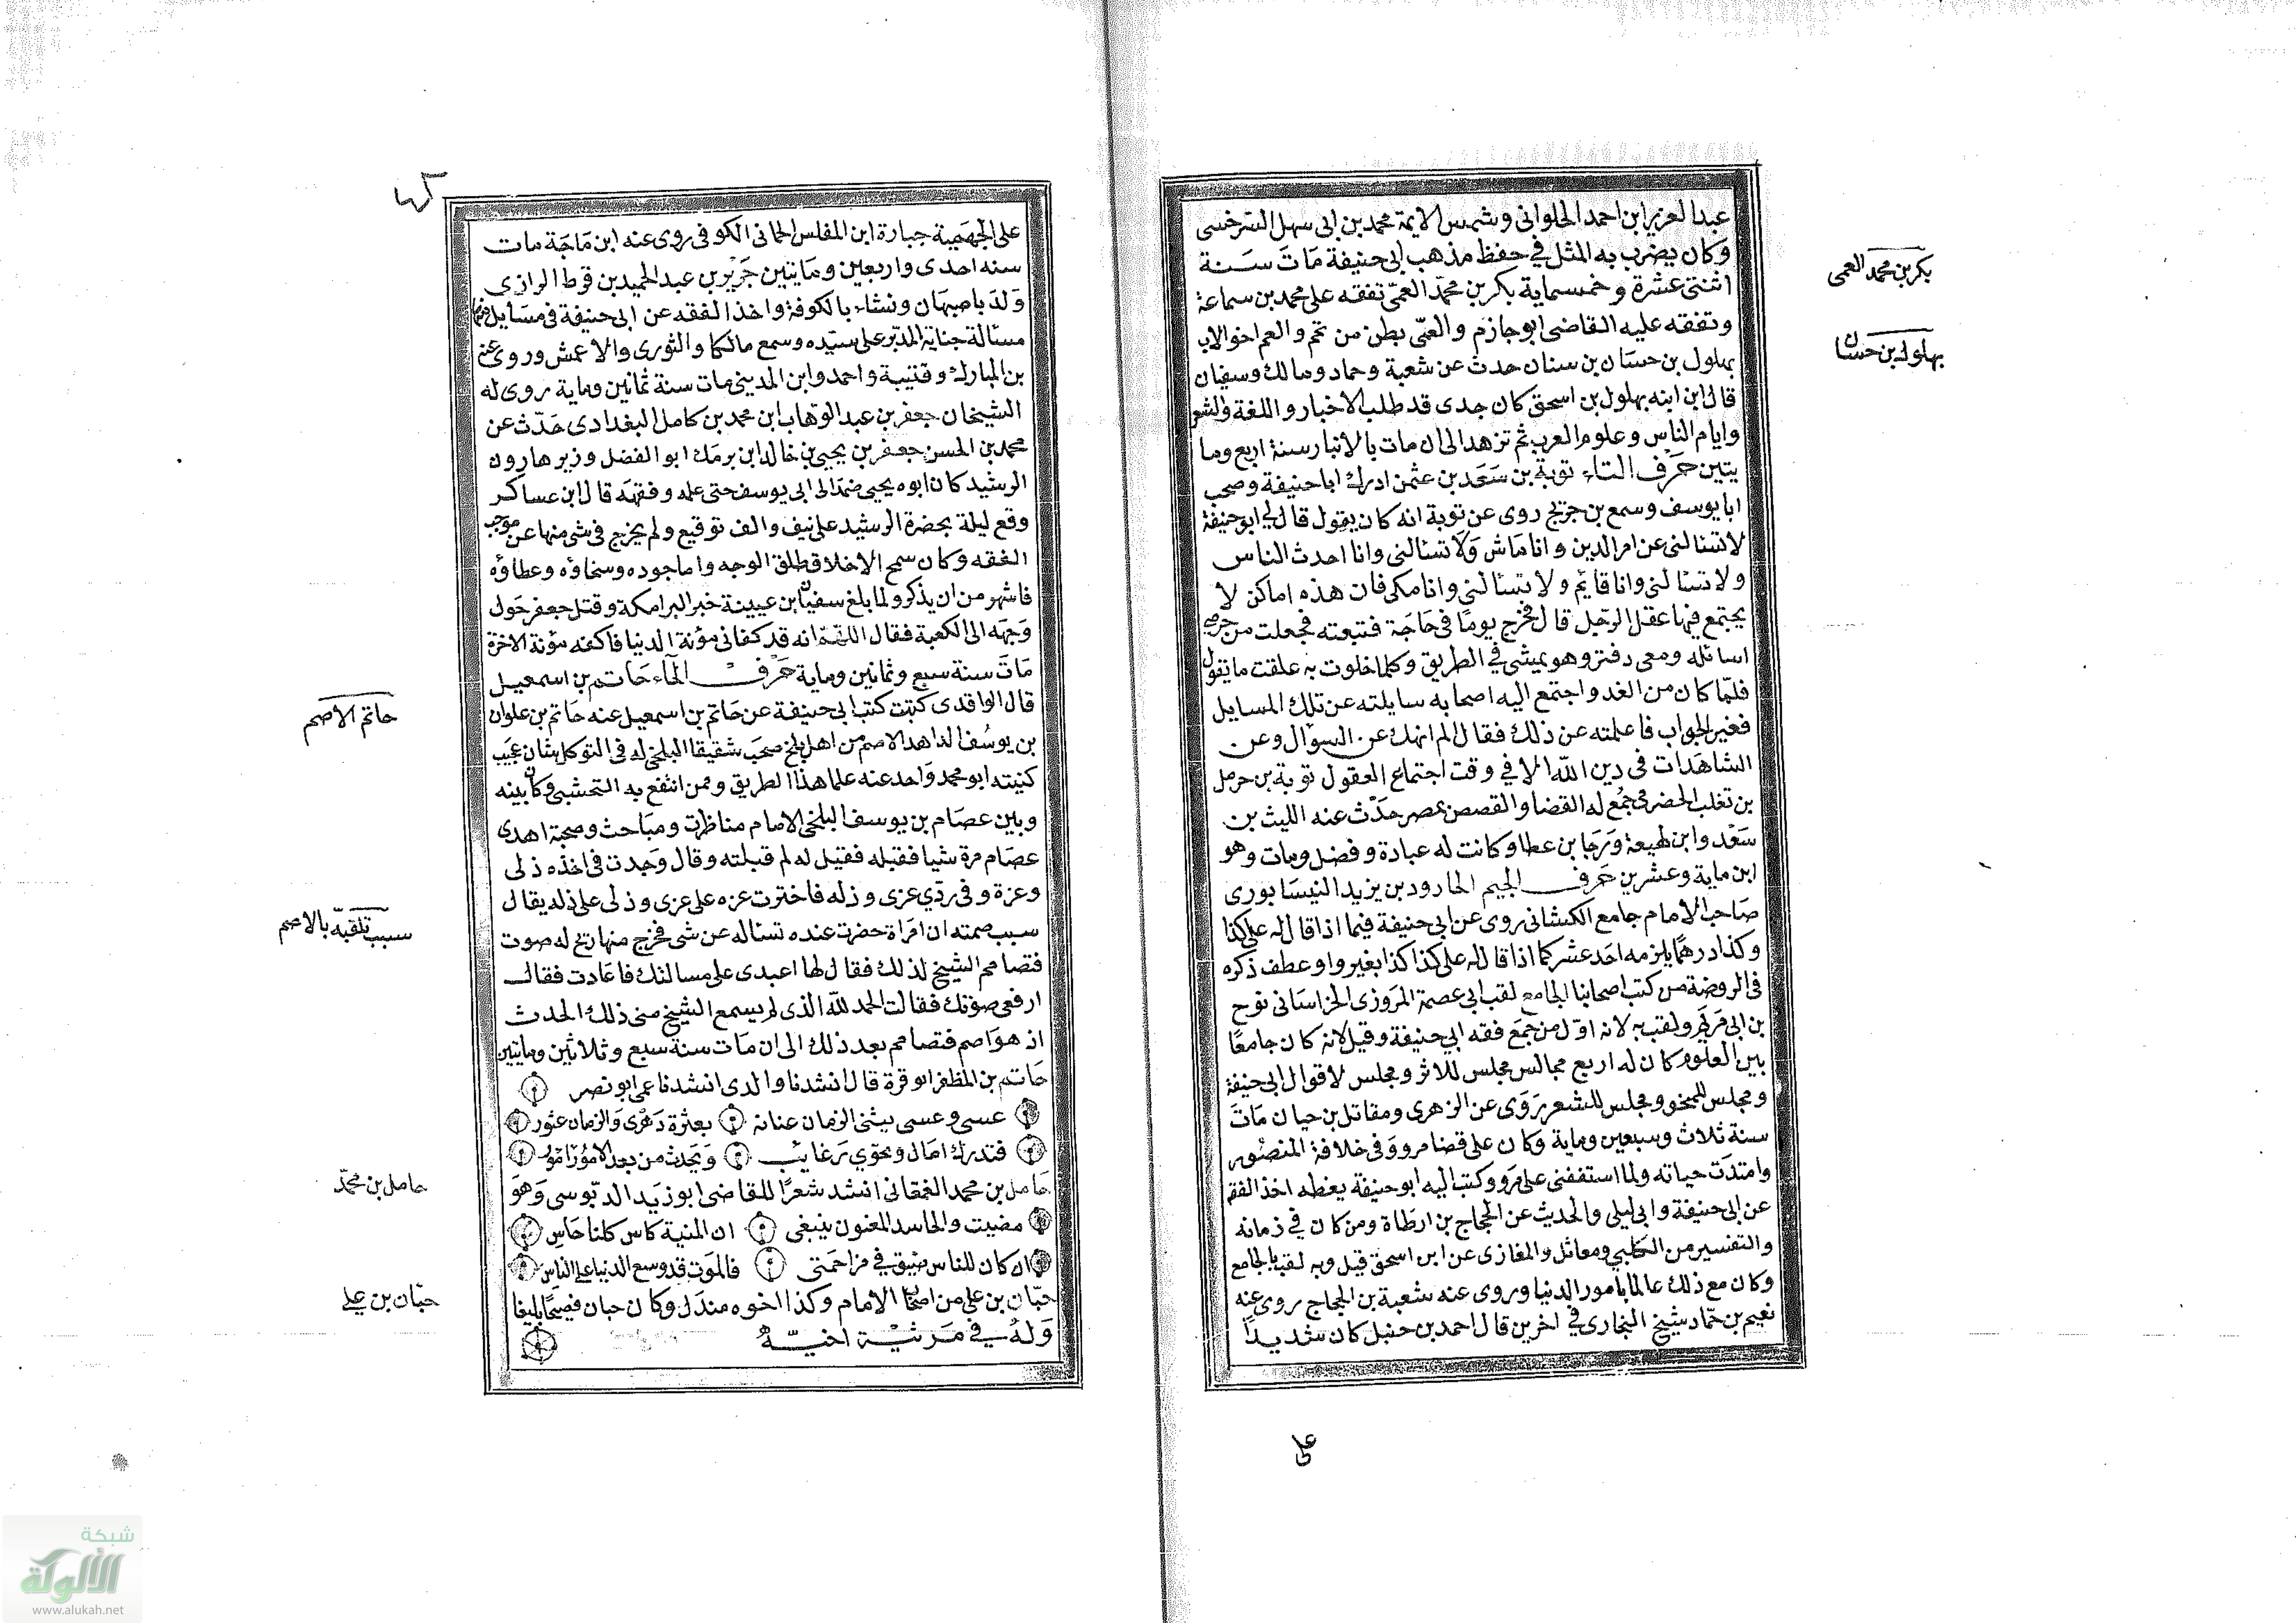 عبد العزيز ابن احمد الحلواني وشمس الايمة محمد بن ابي سهل السرخسى
وكان يضرب به المثل في حفظ مذهب ابي حنيفة مات سنة
اثنتى عشرة وخمسماية بكر بن محمد العمى تفقه على محمد بن سماعة
وتفقه عليه القاضى ابو جازم والعمى بطن من تم والعم اخو الاب
بهلول بن حسان بن سنان حدث عن شعبة وحماد ومالك وسفيان
قال ابن ابنه بهلول بن اسحق كان جدى قد طلب الاخبار واللغة والشعر
وايام الناس وعلوم العرب ثم تزهد الى ان مات بالانبار سنة اربع وما
يتين حرف التاء توبة بن سعد بن عثمن ادرك ابا حنيفة وصحب
ابا يوسف وسمع بن جريج روى عن توبة انه كان يقول قال لي ابو حنيفة
لا تسئالنى عن امر الدين وانا ماش ولا تسئالنى وانا احدث الناس
ولا تسئالنى وانا قايم ولا تسئالني وانا مكى فان هذه اماكن لا
يجتمع فيها عقل الرجل قال فخرج يوما في حاجة فتبعته فجعلت من حرصي
اسائله ومعى دفتر وهو يمشي في الطريق وكلما خلوت به علقت ما يقول
فلما كان من الغد واجتمع اليه اصحابه سايلته عن تلك المسايل
فغير الجواب فاعلمته عن ذلك فقال الم انهك عن السؤال وعن
الشاهدات في دين الله الا في وقت اجتماع العقول توبة بن حرمل
بن تغلب الحضرمى جمع له القضا والقصص بمصر حدث عنه الليث بن
سعد وابن لهيعة ورجا بن عطا وكانت له عبادة وفضل ومات وهو
ابن ماية وعشرين حرف الجيم الجارود بن يزيد النيسابورى
صاحب الامام جامع الكشانى روى عن ابي حنيفة فيما اذا قال له على كذا
وكذا درهما يلزمه احد عشر كما اذا قال له على كذا كذا بغير واو عطف ذكره
في الروضة من كتب اصحابنا الجامع لقب ابي عصمة المروزى الخراسانى نوح
بن ابى مريم ولقب به لانه اول من جمع فقه ابي حنيفة وقيل لانه كان جامعا
بين العلوم كان له اربع مجالس مجلس للاثر ومجلس لاقوال ابي حنيفة
ومجلس للنحو ومجلس للشعر روى عن الزهرى ومقاتل بن حيان مات
سنة ثلاث وسبعين وماية وكان على قضا مرو في خلافة المنصور
وامتدت حياته ولما استقضى على مرو وكتب اليه ابو حنيفة يعظه اخذ الفقه
عن ابي حنيفة وابي ليلى والحديث عن الحجاج بن ارطاة ومن كان في زمانه
والتفسير من الكلبي ومقاتل والمغازى عن ابن اسحق قيل وبه لقب بالجامع
وكان مع ذلك عالما بامور الدنيا وروى عنه شعبة بن الحجاج روى عنه
نعيم بن حماد شيخ البخارى في اخرين قال احمد بن حنبل كان شديدا
على
بكر بن محمد العمى
بهلول بن حسان
على الجهمية جبارة ابن المغلس الحمانى الكوفى روى عنه ابن ماجة مات
سنه احدى واربعين ومايتين جرير بن عبد الحميد بن قرط الرازى
ولد باصبهان ونشاء بالكوفة واخذ الفقه عن ابى حنيفة فى مسايل فمنها
مسئالة جناية المدبر على سيده وسمع مالكا والثورى والاعمش وروى عنه
بن المبارك وقتيبة واحمد وابن المدينى مات سنة ثمانين وماية روى له
الشيخان جعفر بن عبد الوهاب ابن محمد بن كامل البغدادى حدث عن
محمد بن الحسن جعفر بن يحيى بن خالد ابن برمك ابو الفضل وزير هارون
الرشيد كان ابوه يحيى ضمه الى ابى يوسف حتى علمه وفقهه قال ابن عساكر
وقع ليلة بحضرة الرشيد على نيف والف توقيع ولم يخرج فى شى منها عن موجب
الفقه وكان سمح الاخلاق طلق الوجه واما جوده وسخاؤه وعطاؤه
فاشهر من ان يذكر ولما بلغ سفيان ابن عيينة خبر البرامكة وقتل جعفر حول
وجهه الى الكعبة فقال اللهم انه قد كفانى مؤنة الدنيا فاكفه مؤنة الاخرة
مات سنة سبع وثمانين وماية حرف الحاء حاتم بن اسمعيل
قال الواقدى كتبت كتب ابى حنيفة عن حاتم بن اسمعيل عنه حاتم بن علوان
بن يوسف الزاهد الاصم من اهل بلخ صحب شقيقا البلخى له فى التوكل شان عجيب
كنيته ابو محمد واحد عنه علما هذا الطريق وممن انتفع به التخشبي وكان بينه
وبين عصام بن يوسف البلخى الامام مناظرت ومباحث وصحبة اهدى
عصام مرة شيا فقبله فقيل له لم قبلته وقال وجدت فى اخذه ذلى
وعزة وفى ردي عزى وذله فاخترت عزه على عزى وذلى على ذله يقال
سبب صمته ان امراة حضرت عنده تسئاله عن شى فخرج منها ريح له صوت
فتصامم الشيخ لذلك فقال لها اعيدى على مسالتك فاعادت فقال
ارفعى صوتك فقالت الحمد لله الذى لم يسمع الشيخ منى ذلك الحدث
اذ هو اصم فتصامم بعد ذلك الى ان مات سنة سبع وثلاثين ومايتين
حاتم بن المظفر ابو قرة قال انشدنا والدى انشدنا عمى ابو نصر
عسى وعسى يثنى الزمان عنانه بعثرة دهرى والزمان عثور
فتدرك امال وتحوي رغايب ويحدث من بعد الامور امور
حامل بن محمد انشد شعرا للقاضى ابو زيد الدبوسى وهو
مضيت والحاسد المغبون يتبغى ان المنية كاس كلنا حاس
ان كان للناس ضيق في مزاحمتى فالموت قد وسع الدنيا على الناس
حبان بن علي من اصحاب الامام وكذا اخوه مندل وكان حبان فصيحا بليغا
وله في مرثية اخيه
حاتم الاصم
سبب تلقبه بالاصم
حامل بن محمد
حبان بن علي
شبكة
الألوكة
www.alukah.net